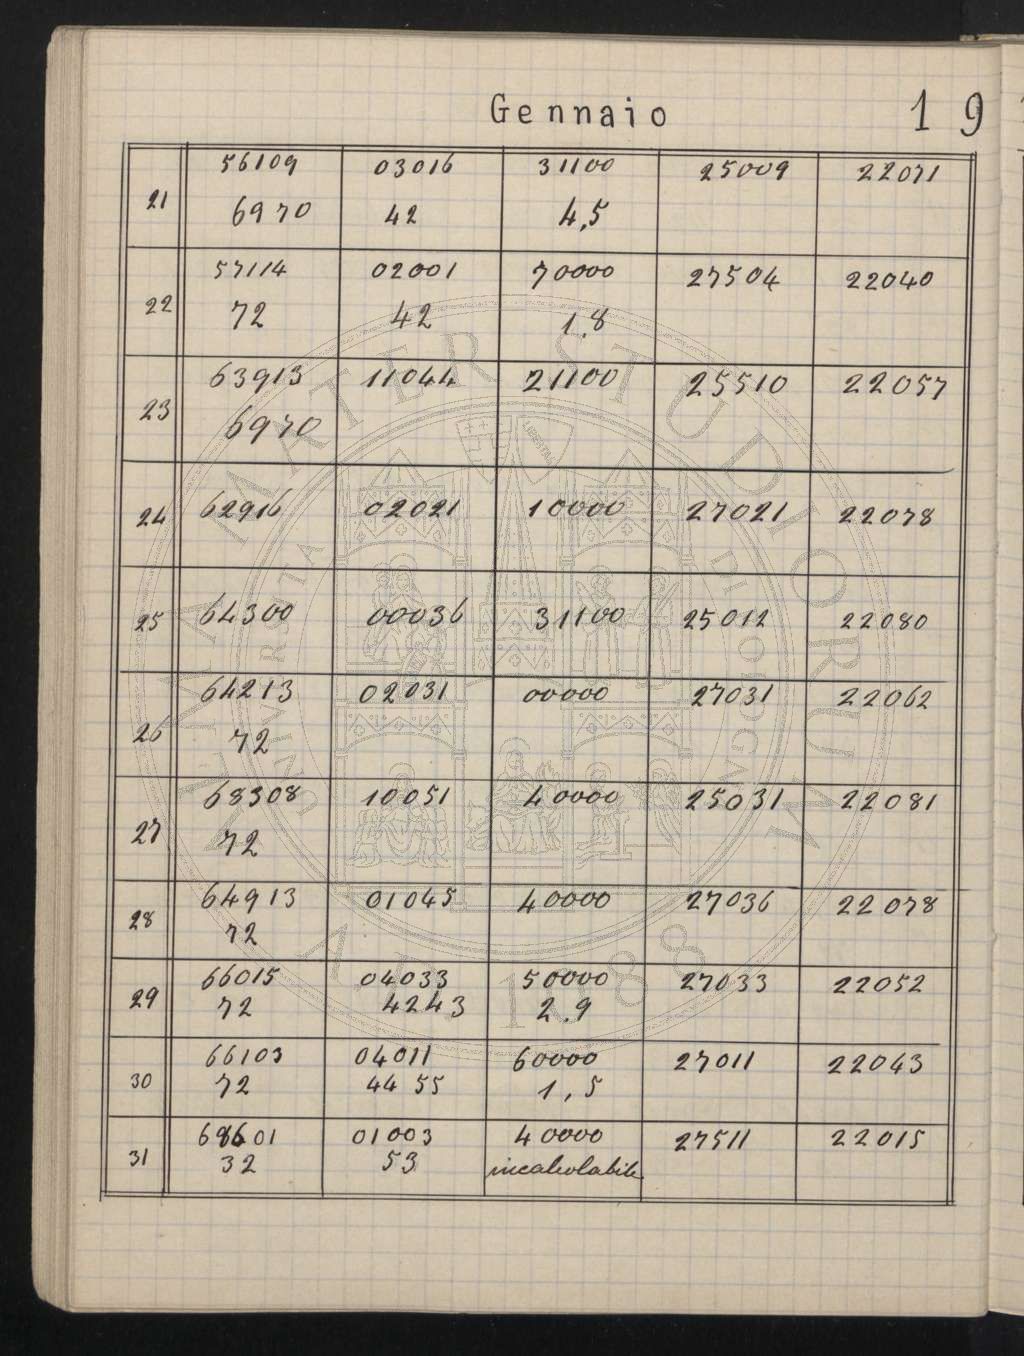 Gennaio 19
21 56109 03016 31100 25009 22071
6970 42 4,5
22 57114 02001 70000 27504 22040
72 42 1.8
23 63913 11044 21100 25510 22057
6970
24 62916 02021 10000 27021 22078
25 64300 00036 31100 25012 22080
26 64213 02031 00000 27031 22062
72
27 68308 10051 40000 25031 22081
72
28 64913 01045 40000 27036 22078
72
29 66015 04033 50000 27033 22052
72 4243 2.9
30 66103 04011 60000 27011 22043
72 44 55 1,5
31 68601 01003 40000 27511 22015
32 53 incalcolabile
ALMA MATER STUDIORUM
A.D. 1088